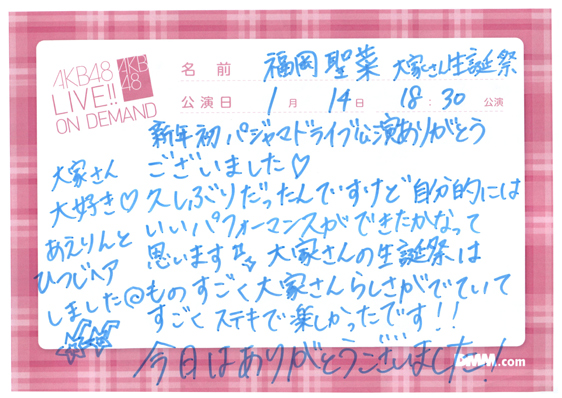 AKB48
LIVE!!
ON DEMAND
AKB
48
名前 福岡聖菜 大家さん生誕祭
公演日 1月 14日 18:30 公演
新年初パジャマドライブ公演ありがとう
ございました♡
久しぶりだったんですけど自分的には
いいパフォーマンスができたかなって
思います 大家さんの生誕祭は
ものすごく大家さんらしさがでていて
すごくステキで楽しかったです!!
今日はありがとうございました!
大家さん
大好き♡
あえりんと
ひつじヘア
しました@
.com